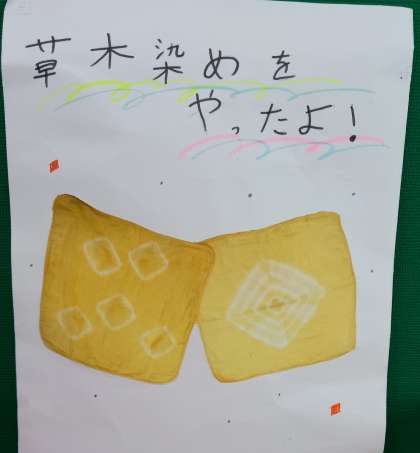 草木染めを
やったよ！